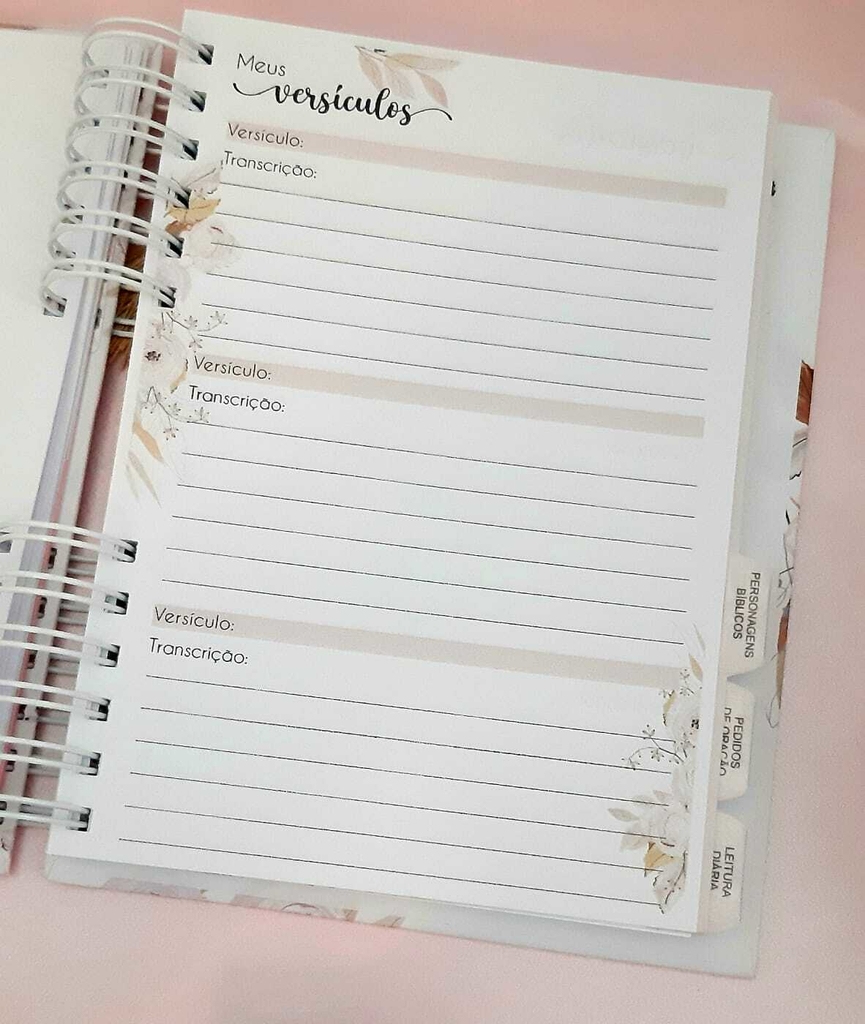 Meus
versículos
Versículo:
Transcrição:
Versículo:
Transcrição:
Versículo:
Transcrição:
PERSONAGENS
BÍBLICOS
PEDIDOS
DE ORAÇÃO
LEITURA
DIÁRIA